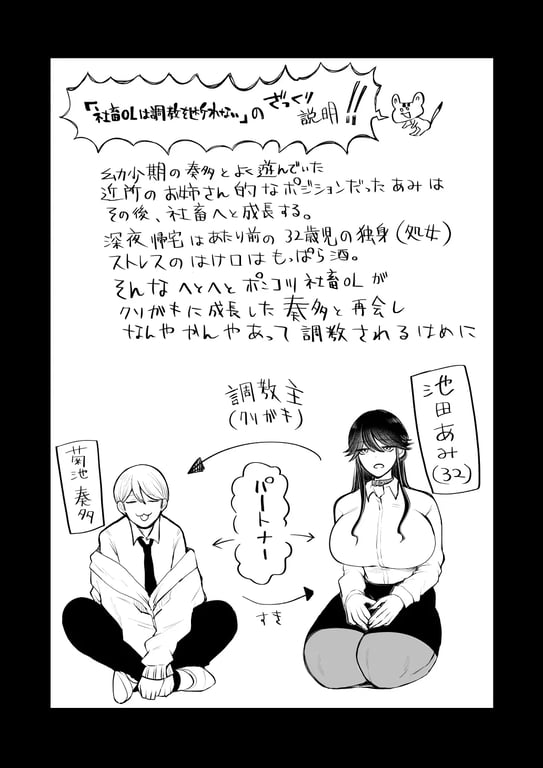 「社畜OLは調教を避けれない」の
ざっくり
説明!!
幼少期の奏多とよく遊んでいた
近所のお姉さん的なポジションだったあみは
その後、社畜へと成長する。
深夜帰宅はあたり前の32歳児の独身(処女)
ストレスのはけ口はもっぱら酒。
そんなへとへとポンコツ社畜OLが
クソガキに成長した奏多と再会し
なんやかんやあって調教されるはめに
調教主
(クソガキ)
池田あみ
(32)
菊池奏多
パートナー
すき